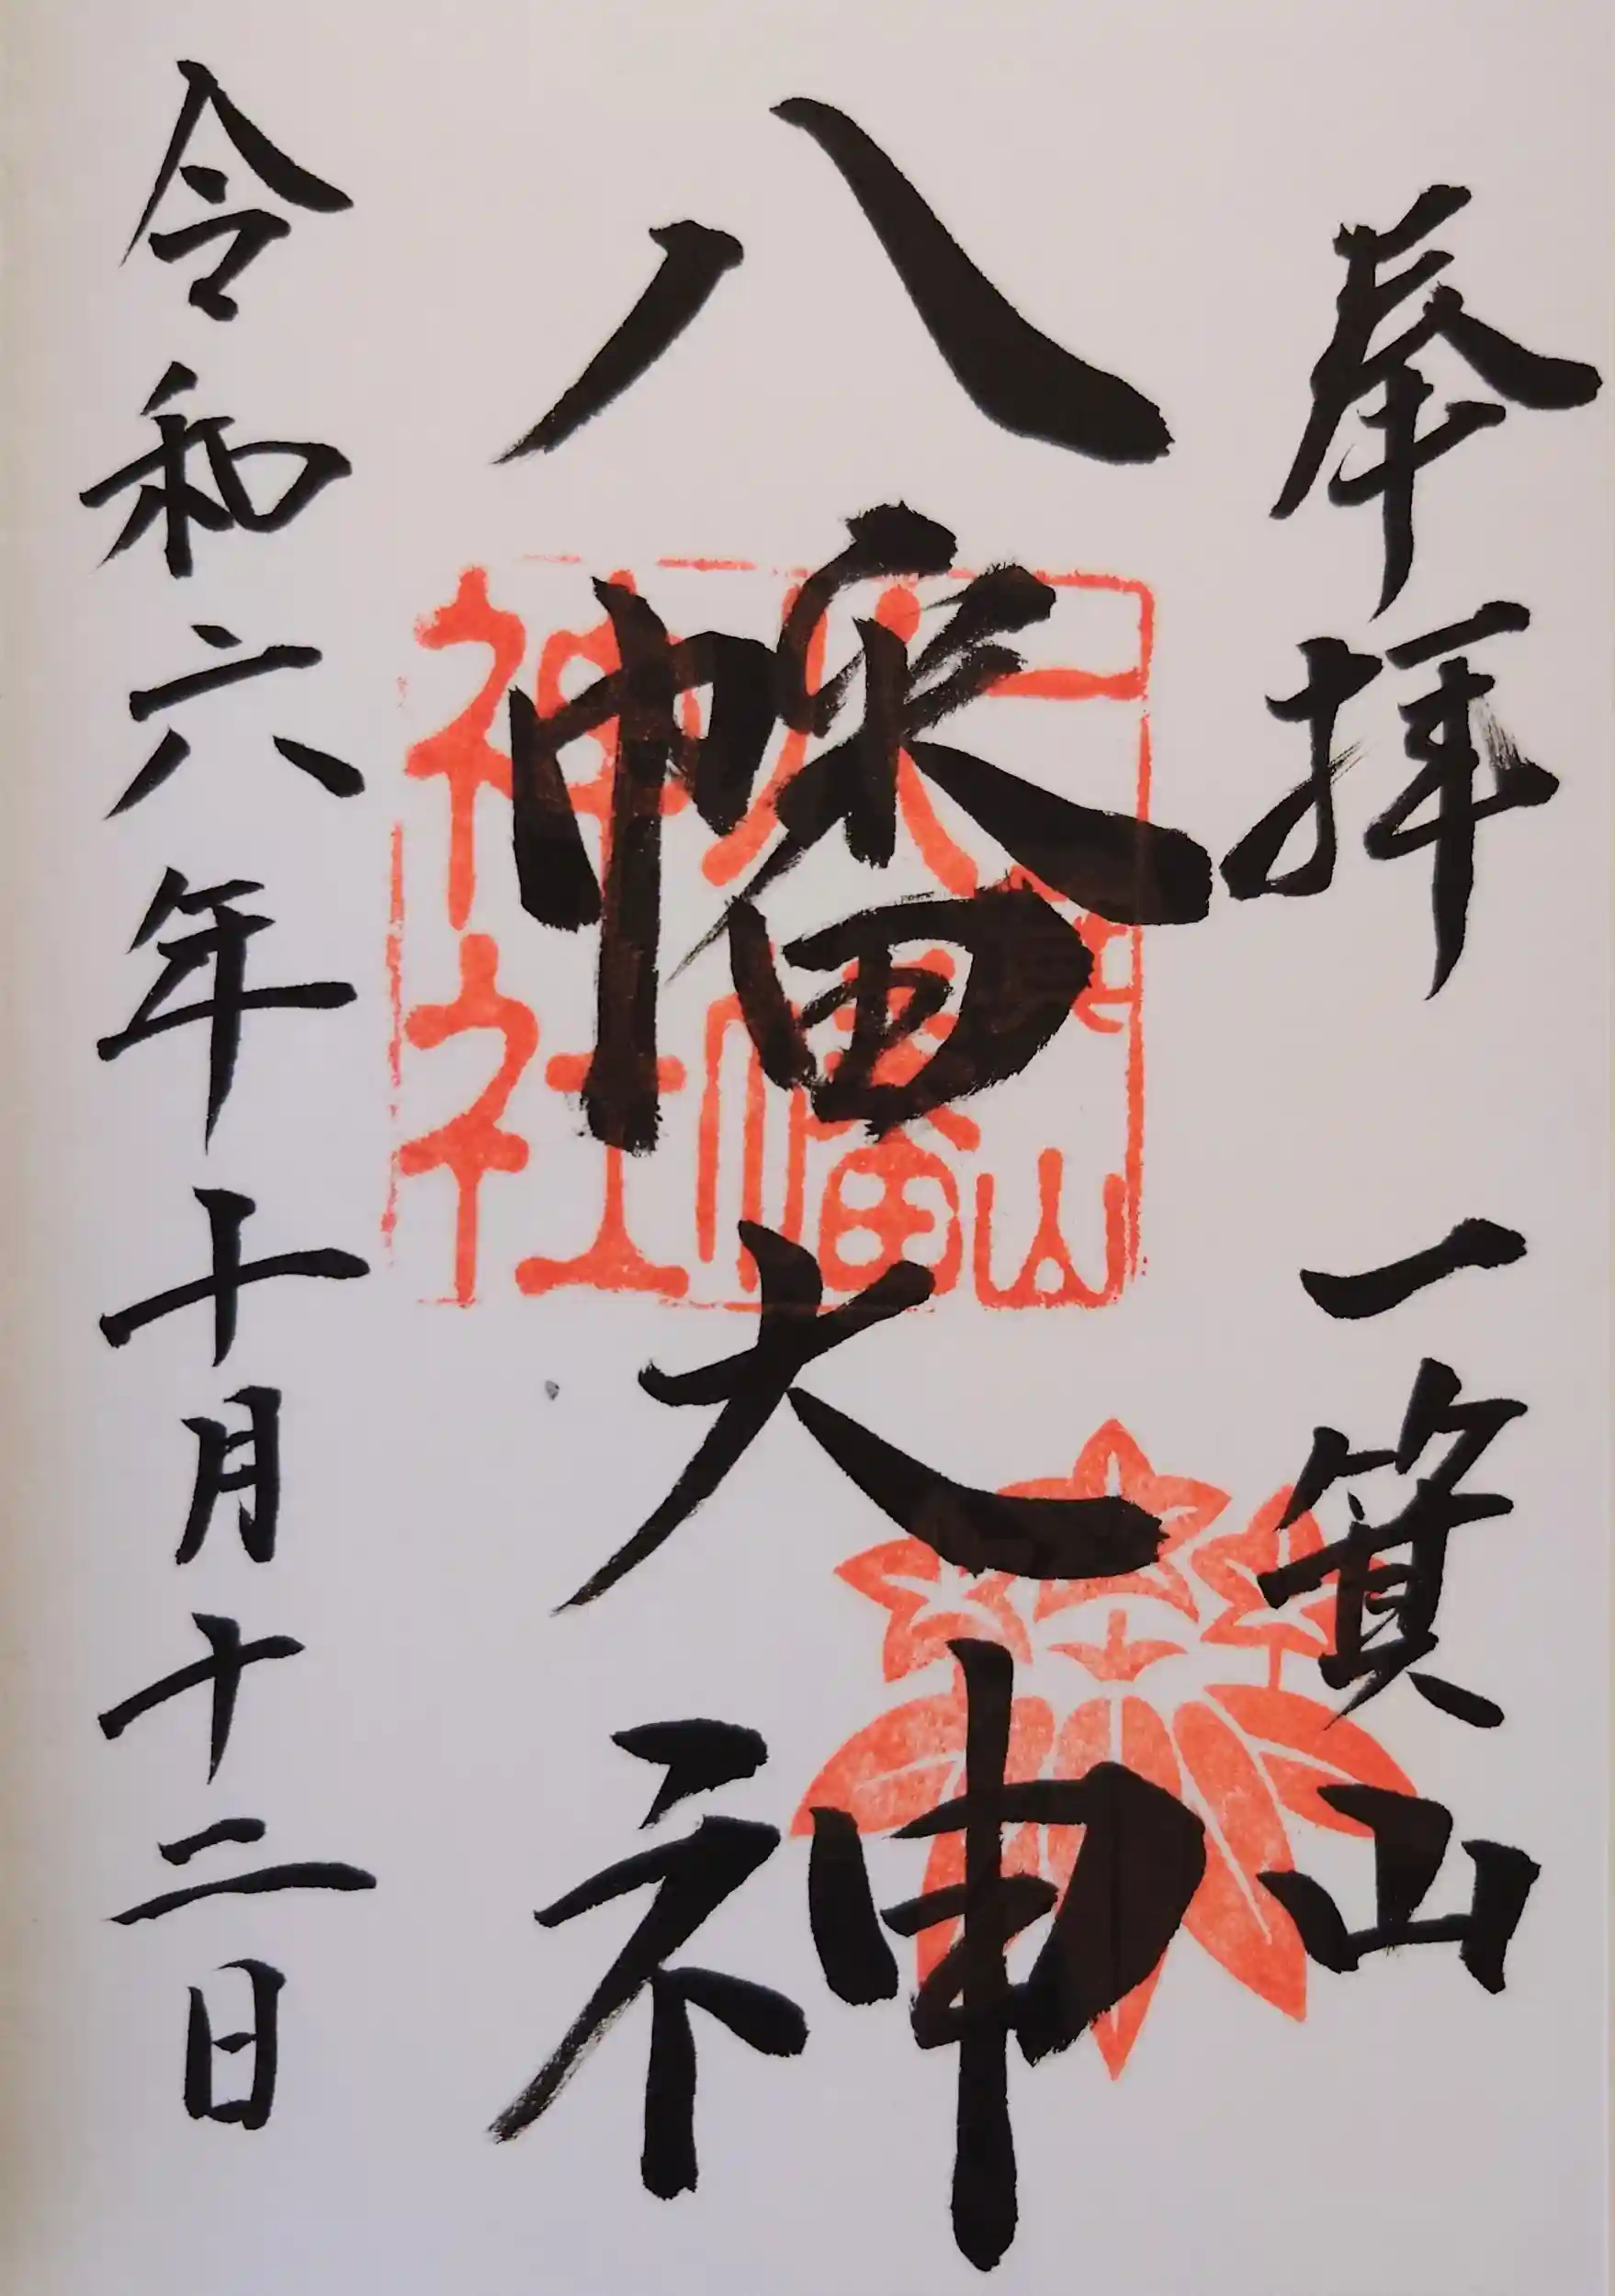 奉拝 一箕山
八幡大神
一箕山八幡神社
令和六年十月十二日